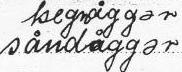 begråggər
såndåggər